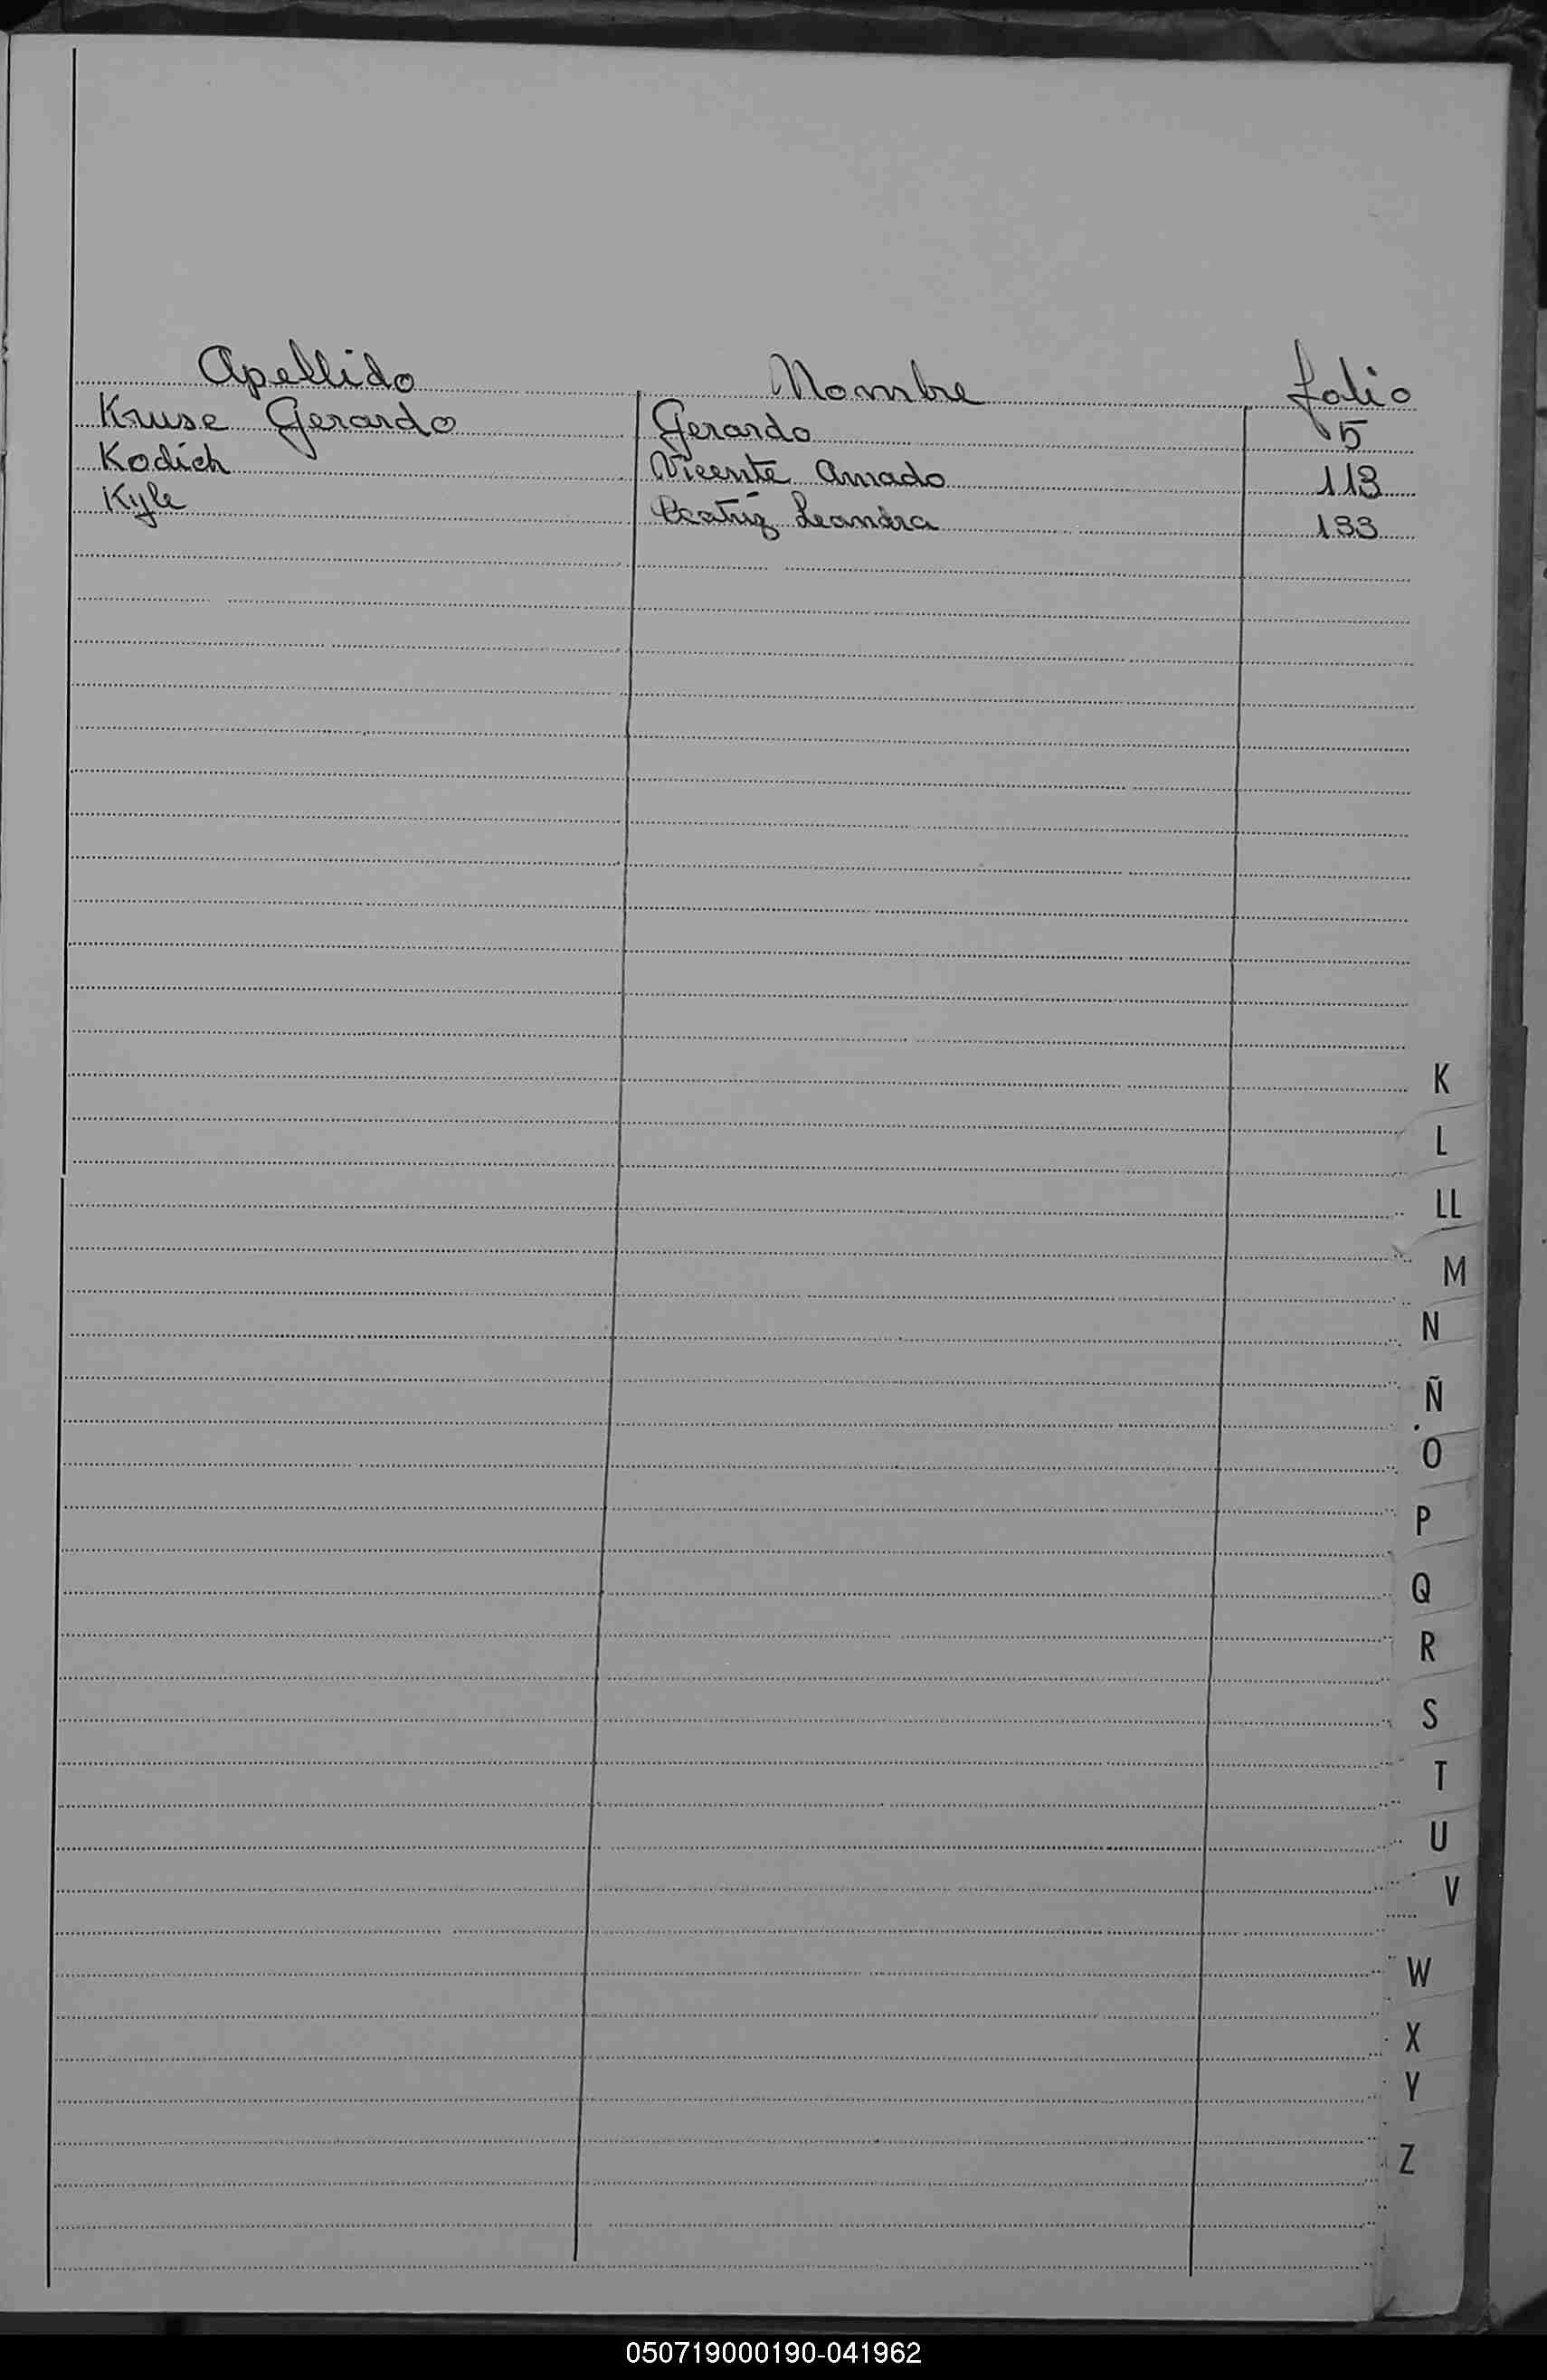 Apellido Nombre folio
Kruse Gerardo Gerardo 5
Kodich Vicente Amado 113
Kyle Beatriz Leandra 133
K
L
LL
M
N
Ñ
O
P
Q
R
S
T
U
V
W
X
Y
Z
050719000190-041962